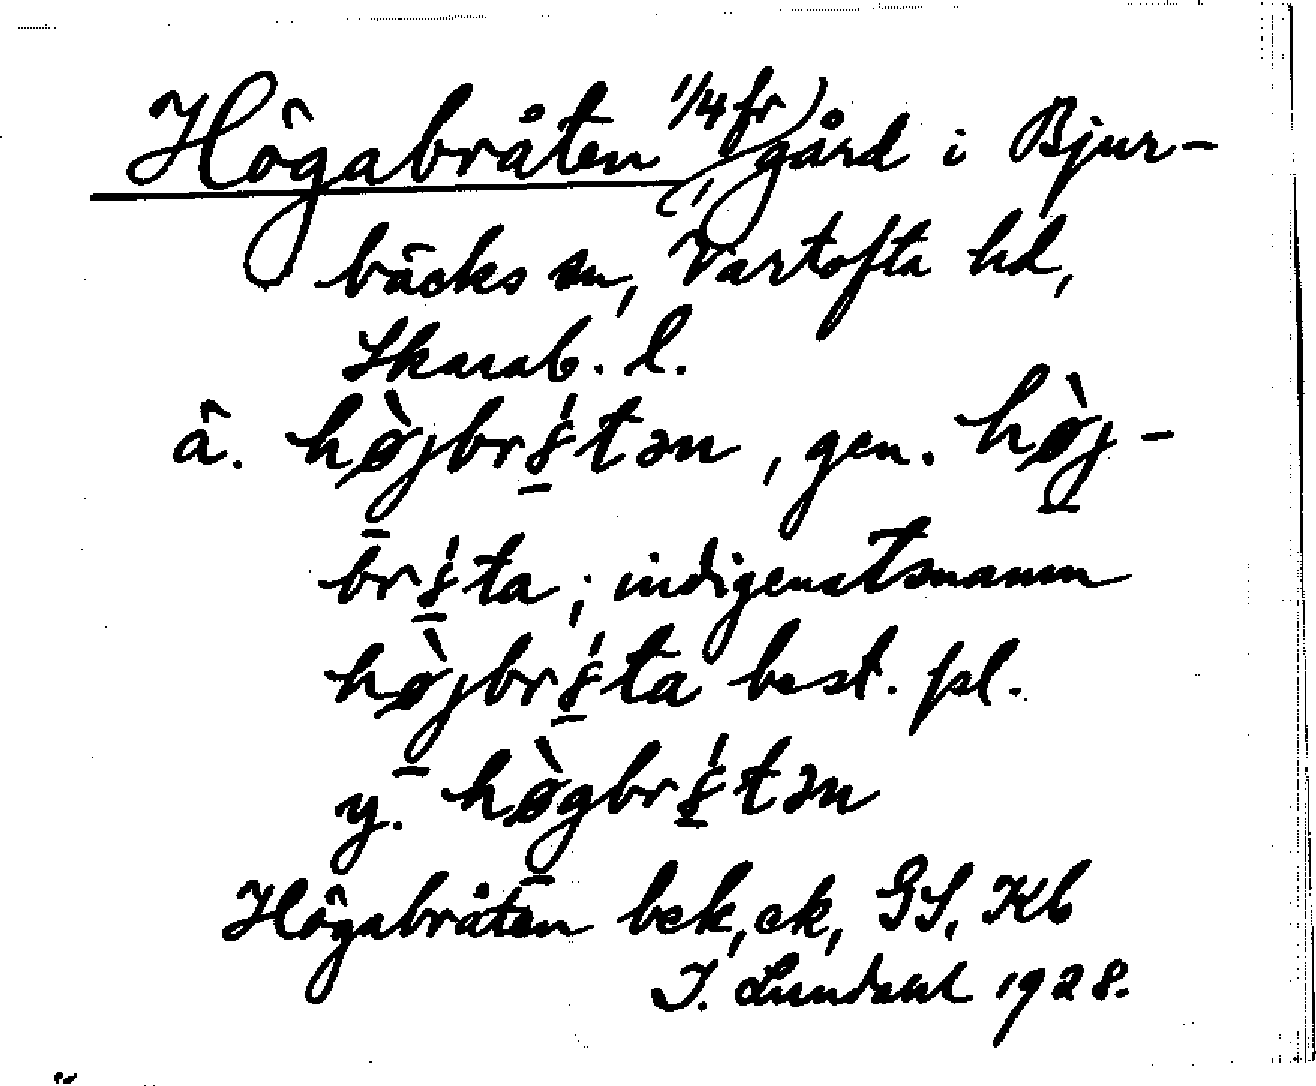 Högabråten (1/4 fr) gård i Bjur-
bäcks sn, Vartofta hd,
Skarab. l.
ä. hø̀jbrɷ́tən, gen. hø̀j-
brɷ́ta; indigenatsnamn
hø̀jbrɷ́ta best. pl.
y. hø̀gbrɷ́tən
Högabråten bek, ek, GS, Kb
I. Lundahl 1928.